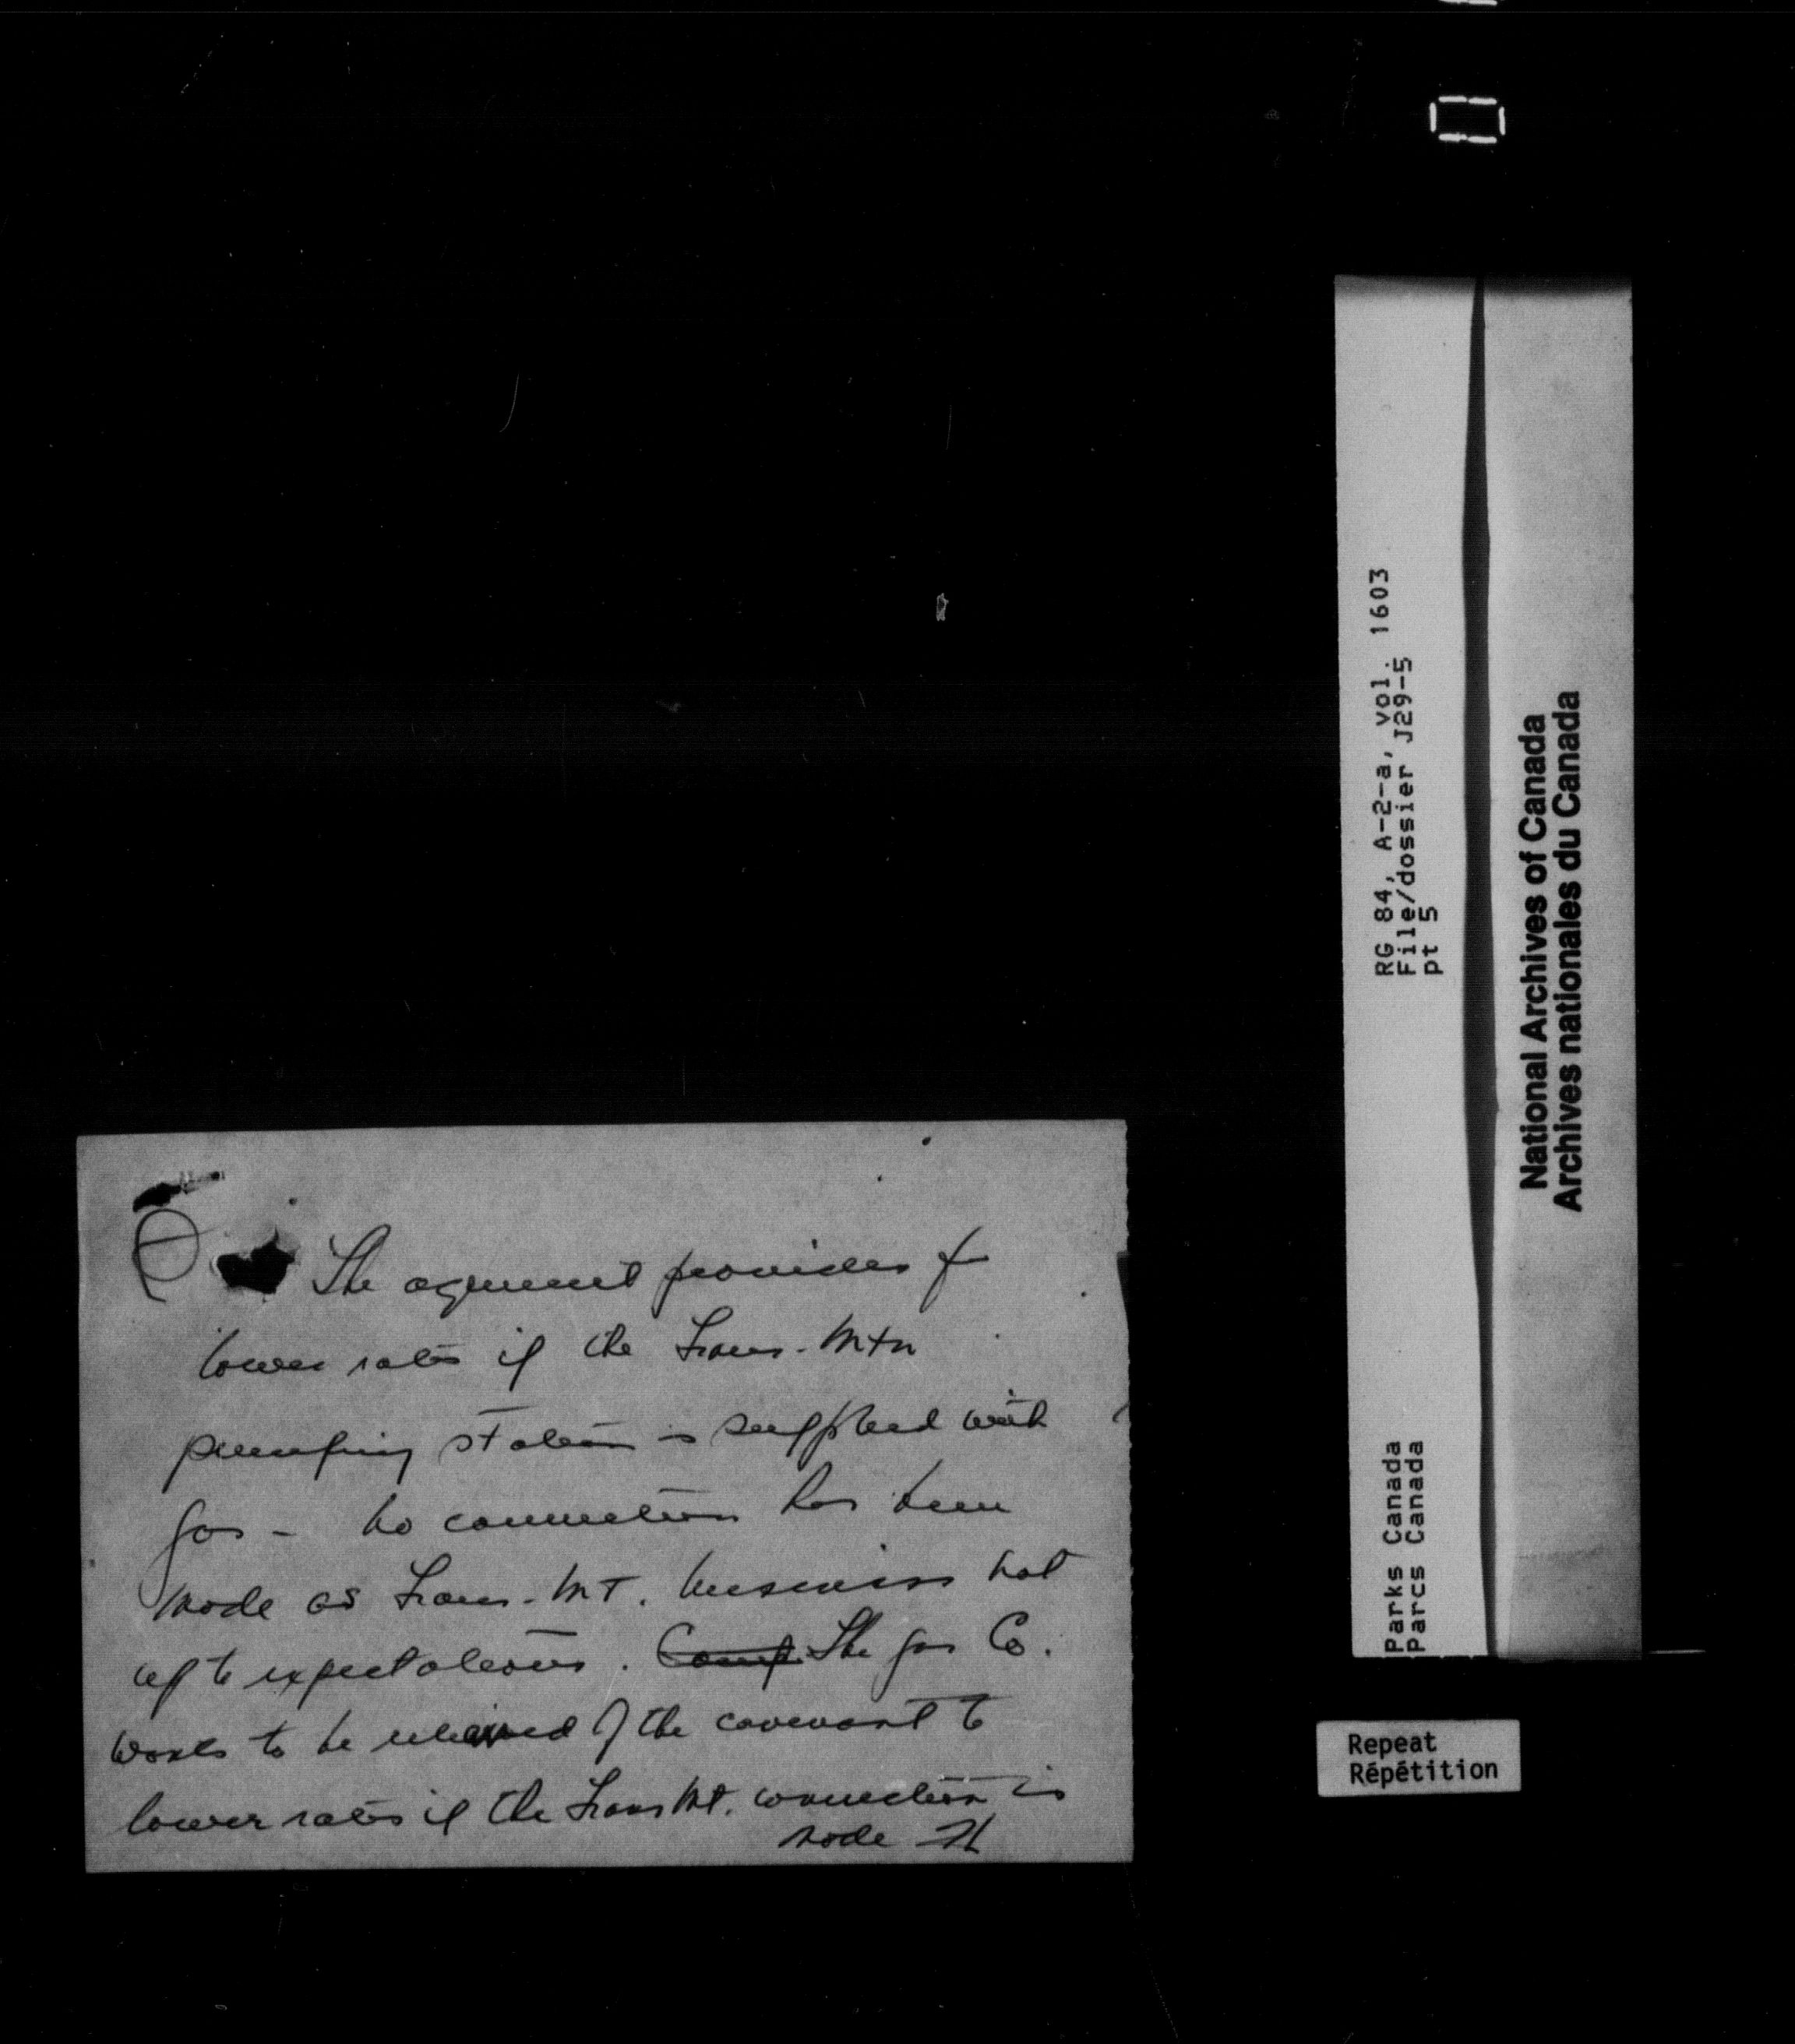 The agreement provides for
lower rates if the Trans-Mtn
pumping station is supplied with
gas - no connection has been
made as Trans-Mt. business not
up to expectations. Comp. The gas Co.
wants to be relieved of the covenant to
lower rates if the Trans Mt. connection is
made
RG 84, A-2-a, vol. 1603
File/dossier J29-5
pt 5
Parks Canada
Parcs Canada
National Archives of Canada
Archives nationales du Canada
Repeat
Répétition